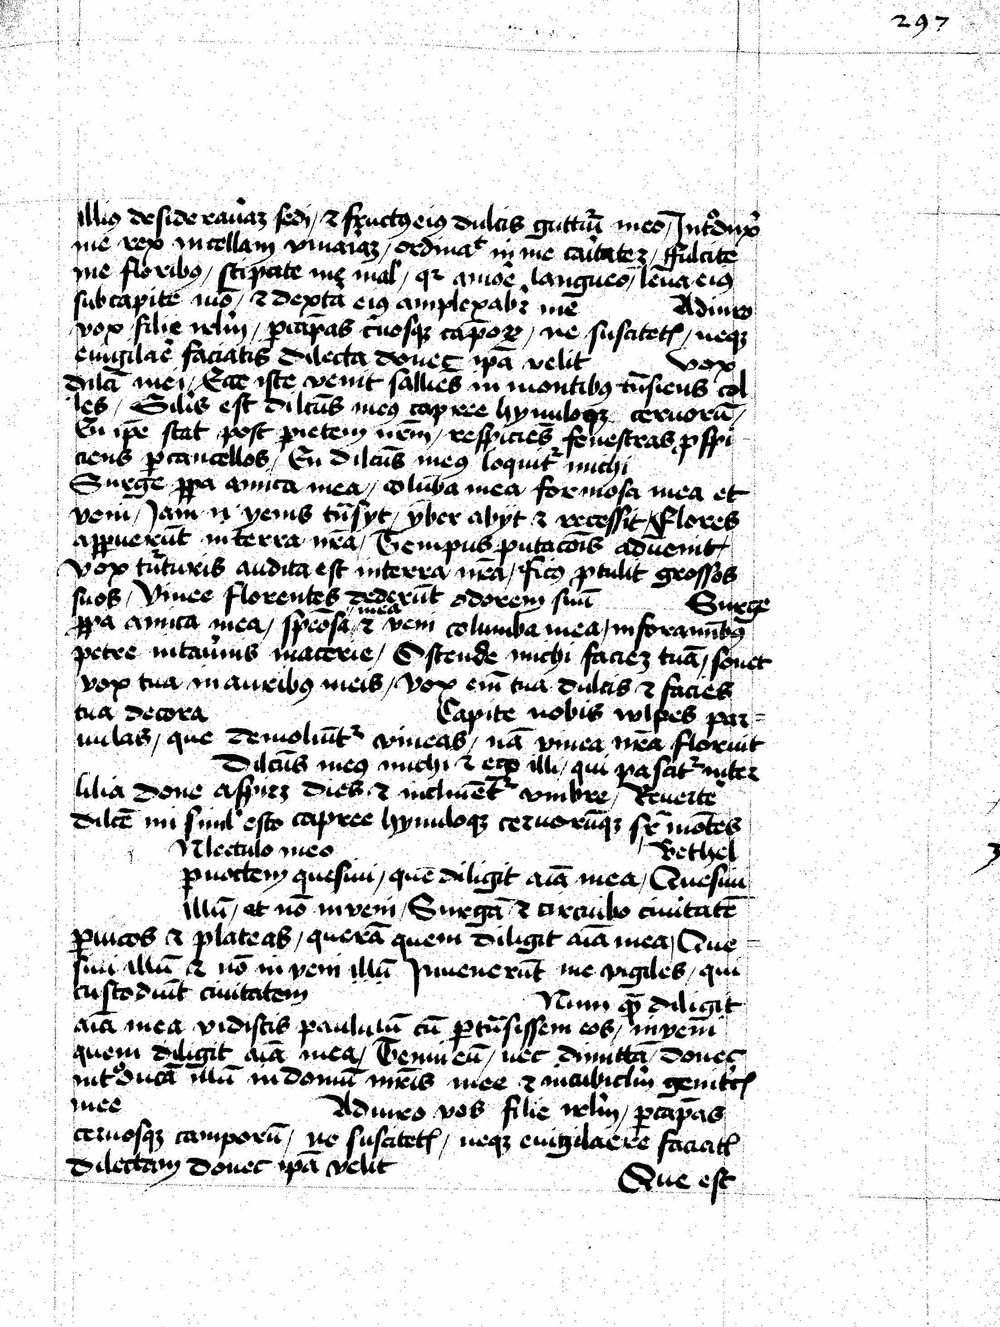 297
illiꝰ desideraueraz sedi / ⁊ fructꝰ eiꝰ dulcis gutturi meo / Introduxit
me rex in cellam vinariaz / ordinauit in me caritatez / ffulcite
me floribꝰ / stipate me malis / qr amore langueo / leua eiꝰ
sub capite meo / ⁊ dextra eiꝰ amplexabit᷑ me Adiuro
vox filie irlm̄ / ꝑ capras ceruosqꝫ campoꝝ / ne suscitetis / neqꝫ
euigilare faciatis dilectā donec ip̄a velit vox
dilecti mei / Ecce iste venit salies in montibꝰ trāsiens col
les / Similis est dilctūs meꝰ capree hynuloqꝫ ceruorū /
En ip̄e stat post parietem nrm̄ / respiciens fenestras ꝓspi
ciens ꝑ cancellos / En dilctūs meꝰ loquit᷑ michi
Surge ꝓpa amica mea / columba mea formosa mea et
veni / Jam n̄ yems trāsijt / ymber abijt ⁊ recessit / Flores
apparuerūt in terra nrā / Tempus putacōis aduenit
vox turturis audita est in terra nrā / ficꝰ ꝓtulit grossos
suos / Vinee florentes dederūt odorem suū Surge
ꝓpa amica mea / speciosa mea ⁊ veni columba mea / in foraminibꝰ
petre in cauernis macerie / Ostende michi faciez tuā / sonet
vox tua in auribꝰ meis / Vox em̄ tua dulcis ⁊ facies
tua decora Capite nobis wlpes par=
uulas / que demoliūt᷑ vineas / nā vinea nrā floruit
Dilctūs meꝰ michi ⁊ ego illi / qui pascit᷑ inter
lilia donec asspirz dies ⁊ inclinēt᷑ vmbre / Reuerte
dilcte mi similis esto capree hynuloqꝫ ceruorūqꝫ sr̄ mōtes
N lectulo meo Bethel
ꝑ noctem quesiui / quē diligit aīā mea / Quesiui
illū / et nō inveni / Surgā ⁊ circuibo ciuitatē
ꝑ vicos ⁊ plateas / querā quem diligit aīā mea / Que=
siui illū ⁊ nō inveni illū Inuenerūt me vigiles / qui
custodiūt ciuitatem Num quē diligit
aīā mea vidistis paululū cū ꝑtrāsissem eos / inveni
quem diligit aīā mea / Tenui eū / nec dimittā / donec
introducā illū in domū mr̄is mee ⁊ in cubiclm̄ genitcis
mee Adiuro vos filie irlm̄ / ꝑ capras
ceruosqꝫ camporū / ne suscitetis / neqꝫ euigilaere faciatis
dilectam donec ip̄ā velit
Que est